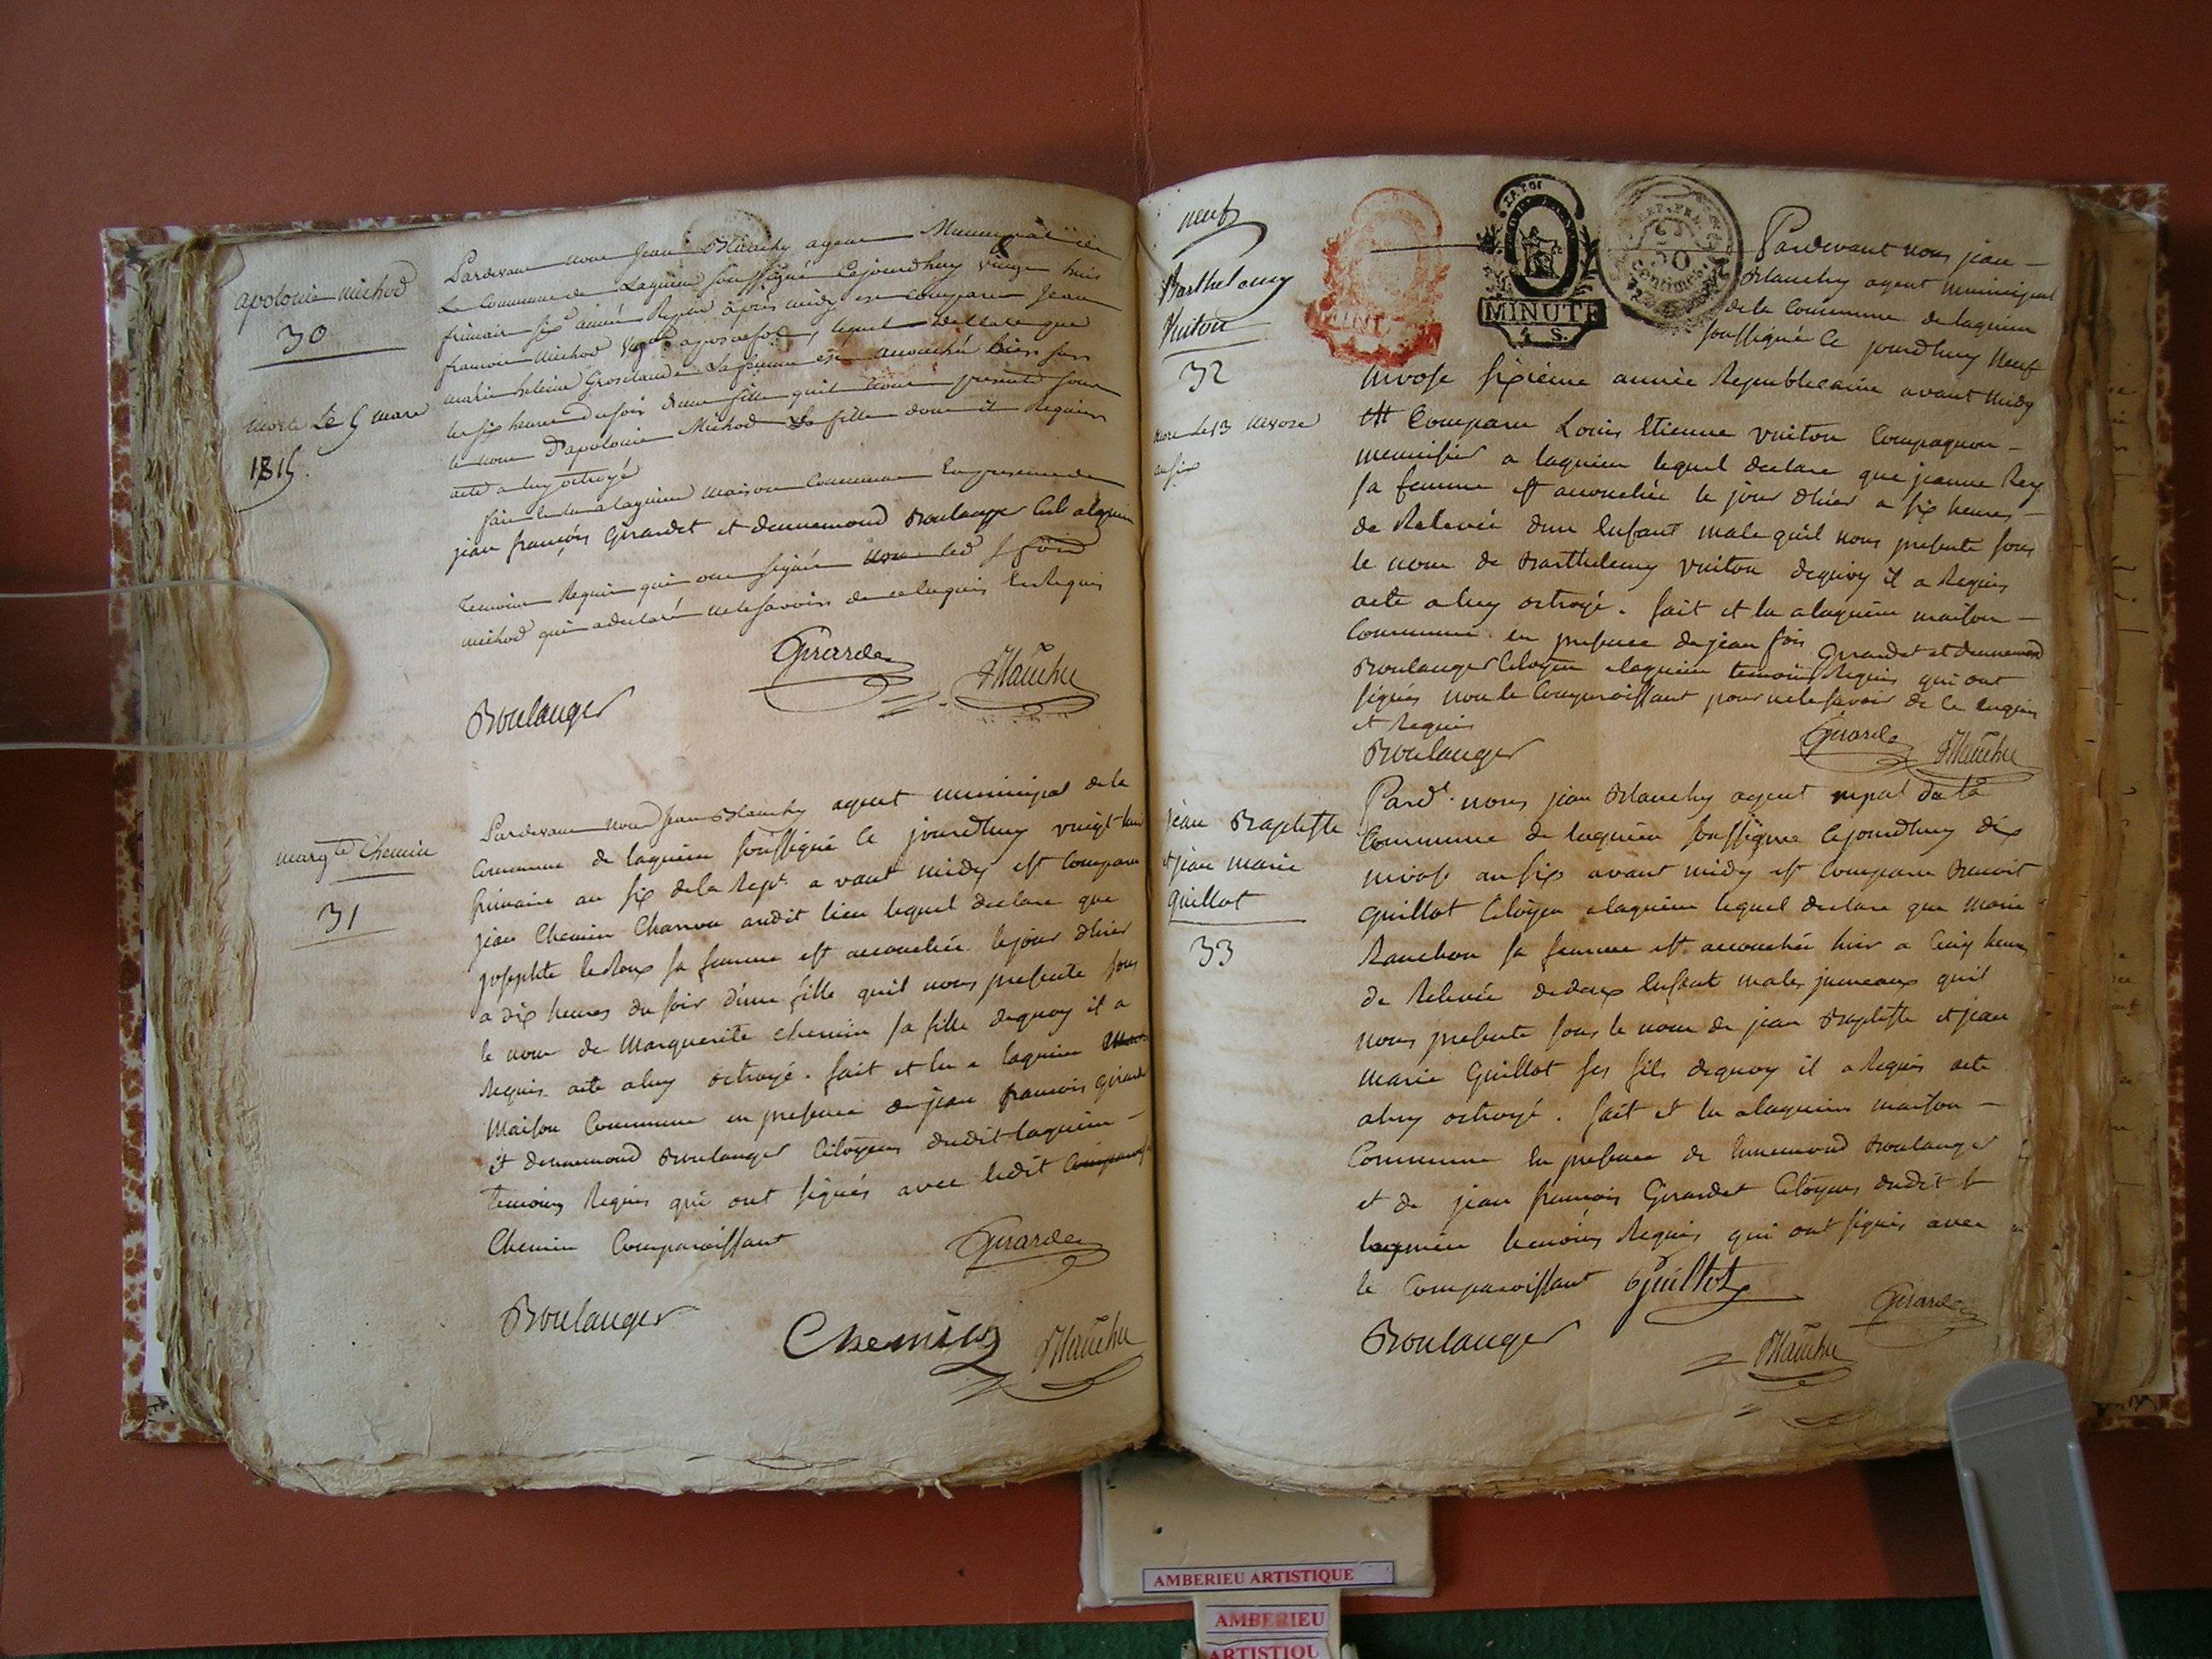 apolonie michod
30
morte Le 5 mars
1815.
Pardevant nous Jean Blanchy agent Municipal de
La Commune de Lagnieu soussigné Cejourdhuy vingt huit
frimair six.e année Repu. après midy est comparu Jean
francois michod lequel declare que
marie heleine Grosclaude Sa femme est accouchée hier sur
les six heures du soir d'une fille quil nous presente sous
le nom D'apolonie Michod Sa fille dont il Requiert
acte a luy octroyé
fait et lu a lagnieu maison Commune En presence de
jean françois Girardet et dennemond Boulanger Cult. alagnieu
temoins Requis qui ont signés non led. f.cois
michod qui a declaré ne le savoir de ce Enquis Et Requis
Girardet
Blanchy
Boulanger
marg.te Chemin
31
Pardevant Nous Jean Blanchy agent municipal de la
Commune de lagnieu soussigné Ce jourdhuy vingt huit
frimaire an six de la Rep.e avant midy est Comparu
jean Chemin Charron audit lieu lequel declare que
josephte ledoux sa femme est accouchée le jour dhier
a dix heures du soir d'une fille quil nous presente sous
le nom de Marguerite chemin sa fille dequoy il a
Requis acte a luy octroyé. fait et lu a lagnieu
Maison Commune en presence de jean francois Girardet
et dennemond Boulanger Citoyens dudit lagnieu –
temoins Requis qui ont signés avec ledit
Chemin Comparoissant
Girardet
Boulanger
Chemin
Blanchy
neuf
Barthelemy
Vuiton
32
mort le 13 nivose
an six
MINUTE
MINUTE
S.
REP. FRA.
50
Centimes
Pardevant nous jean –
Blanchy agent municipal
de la Commune de lagnieu
soussigné Ce jourdhuy neuf
nivose sixieme année Republicaine avant midy
est Comparu Louis Etienne vuiton Compagnon –
menuisier a lagnieu lequel declare que jeanne Rey
sa femme est accouchée le jour dhier a six heures –
de Relevée dun Enfant male quil nous presente sous
le nom de Barthelemy vuiton dequoy il a Requis
acte a luy octroyé. fait et lu alagnieu maison –
Commune en presence de jean fois Girardet et dennemond
Boulanger Citoyens alagnieu temoins Requis qui ont
signés non le Comparoissant pour ne le savoir de Ce Enquis
et Requis
Boulanger
Girardet
Blanchy
jean Baptiste
et jean marie
Guillot
33
Pard.t nous jean Blanchy agent mpal de la
Commune de lagnieu soussigné Cejourdhuy dix
nivose an six avant midy est Comparu Benoit
Guillot Citoyen alagnieu lequel declare que Marie
Ranchon sa femme est accouchée hier a Cinq heures
de Relevée de deux Enfant males jumeaux quil
nous presente sous le nom de jean Baptiste et jean
Marie Guillot ses fils dequoy il a Requis acte
a luy octroyé. fait et lu alagnieu maison –
Commune En presence de Ennemond Boulanger
et de jean francois Girardet Citoyens dudit
lagnieu temoins Requis qui ont signés avec
le Comparoissant Guillot
Girardet
Boulanger
Blanchy
AMBERIEU ARTISTIQUE
AMBERIEU
ARTISTIQU